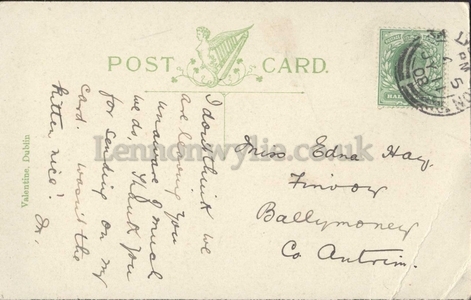 POST CARD.
I don't think we
are leaving you
unaware of much
we do. Thank you
for sending on my
card. wasn't the
kitten nice!
Miss Edna Hay,
Finvoy
Ballymoney
Co Antrim.
Valentine, Dublin
Lennonwylie.co.uk